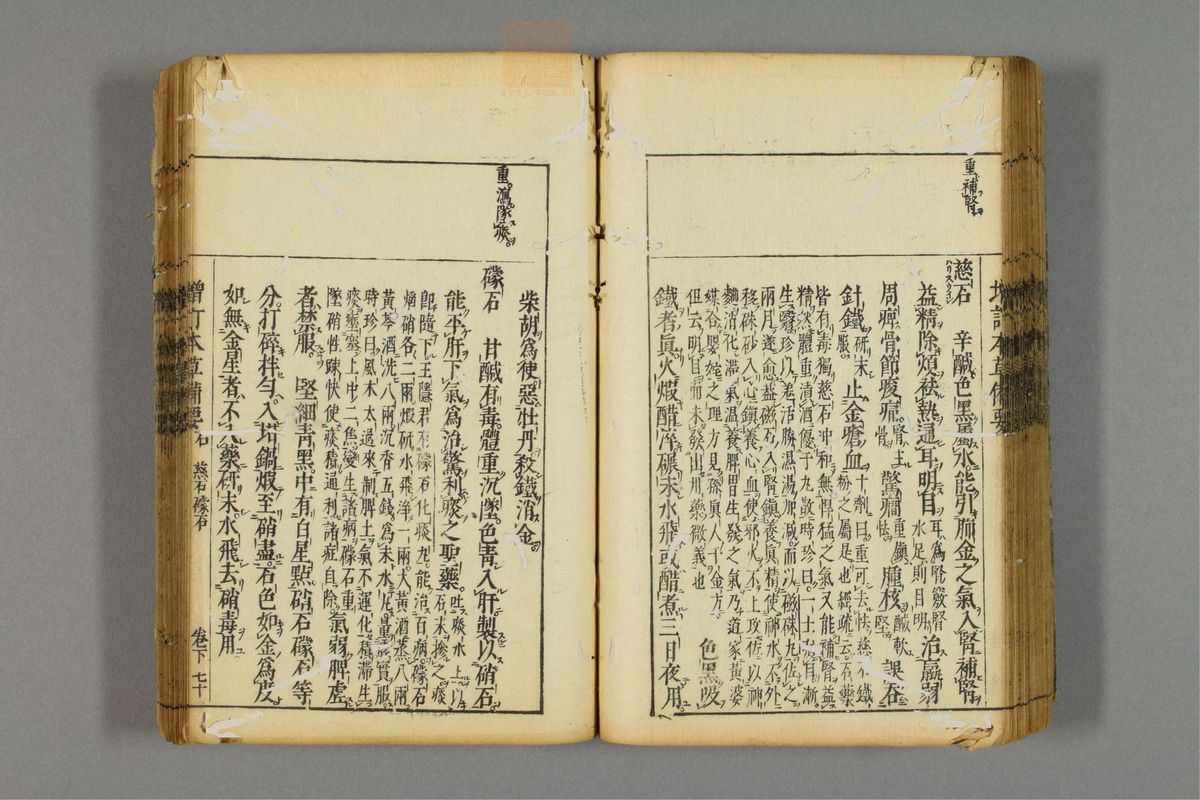 重補腎
慈石　辛鹹色黑屬水能引肺金之氣入腎補腎
益精除煩袪熱通耳明目 耳為腎竅腎水足則目明 治羸弱
周痺骨節痠痛 腎主骨 驚癇 重鎮怯 腫核 鹹軟堅 誤吞
針鐵 研末服 止金瘡血 十劑曰重可去怯慈石鐵粉之屬是也經疏云石藥
皆有毒獨慈石冲和無悍猛之氣又能補腎益
精然體重漬酒優于丸散時珍曰一士病目漸
生翳珍以羗活勝濕湯加減而以磁硃丸佐之
兩月遂愈益磁石入腎鎮養真精使神水不外
移硃砂入心鎮養心血使邪火不上攻佐以神
麴消化滯氣溫養脾胃生發之氣乃道家黃婆
媒合嬰姹之理方見孫真人千金方
但云明目而未發出用藥微義也 色黑吸
鐵者真火煅醋淬碾末水飛或醋煮三日夜用
柴胡為使惡牡丹殺鐵消金
重瀉隊痰
礞石　甘鹹有毒體重沉墜色青入肝製以硝石
能平肝下氣為治驚利痰之聖藥 吐痰水上以石末摻之痰
卽隨下王隱君有礞石化痰丸能治百病礞石
焰硝各二兩煅研水飛淨一兩大黃酒蒸八兩
黃芩酒洗八兩沉香五錢為末水丸量虛實服
時珍曰風木太過來制脾土氣不運化積滯生
痰壅塞上中二焦變生諸病礞石重
墜硝性疎快使痰積通利諸症自除 氣弱脾虛
者禁服　堅細青黑中有白星點硝石礞石等
分打碎拌勻入坩鍋煅至硝盡石色如金為度
如無金星者不入藥研末水飛去硝毒用
增訂本草備要 石　慈石礞石 卷下 七十